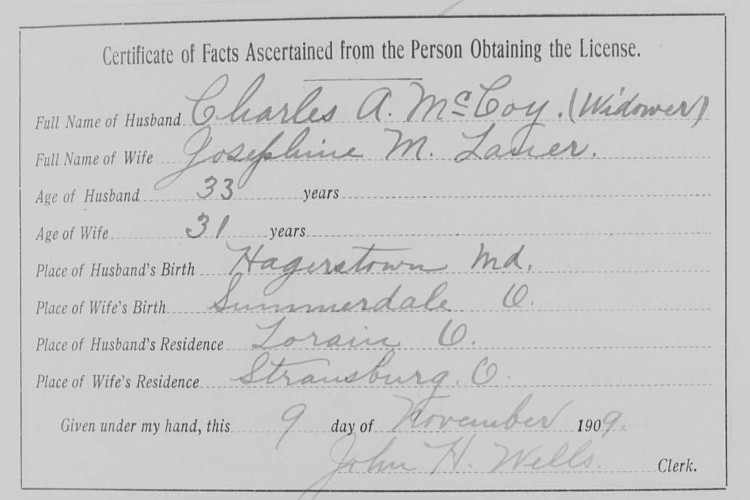 Certificate of Facts Ascertained from the Person Obtaining the License.
Full Name of Husband Charles A. McCoy. (Widower)
Full Name of Wife Josephine M. Lauer.
Age of Husband 33 years
Age of Wife 31 years
Place of Husband's Birth Hagerstown Md.
Place of Wife's Birth Summerdale O.
Place of Husband's Residence Lorain O.
Place of Wife's Residence Strausburg. O.
Given under my hand, this 9 day of November 1909.
John H. Wells. Clerk.